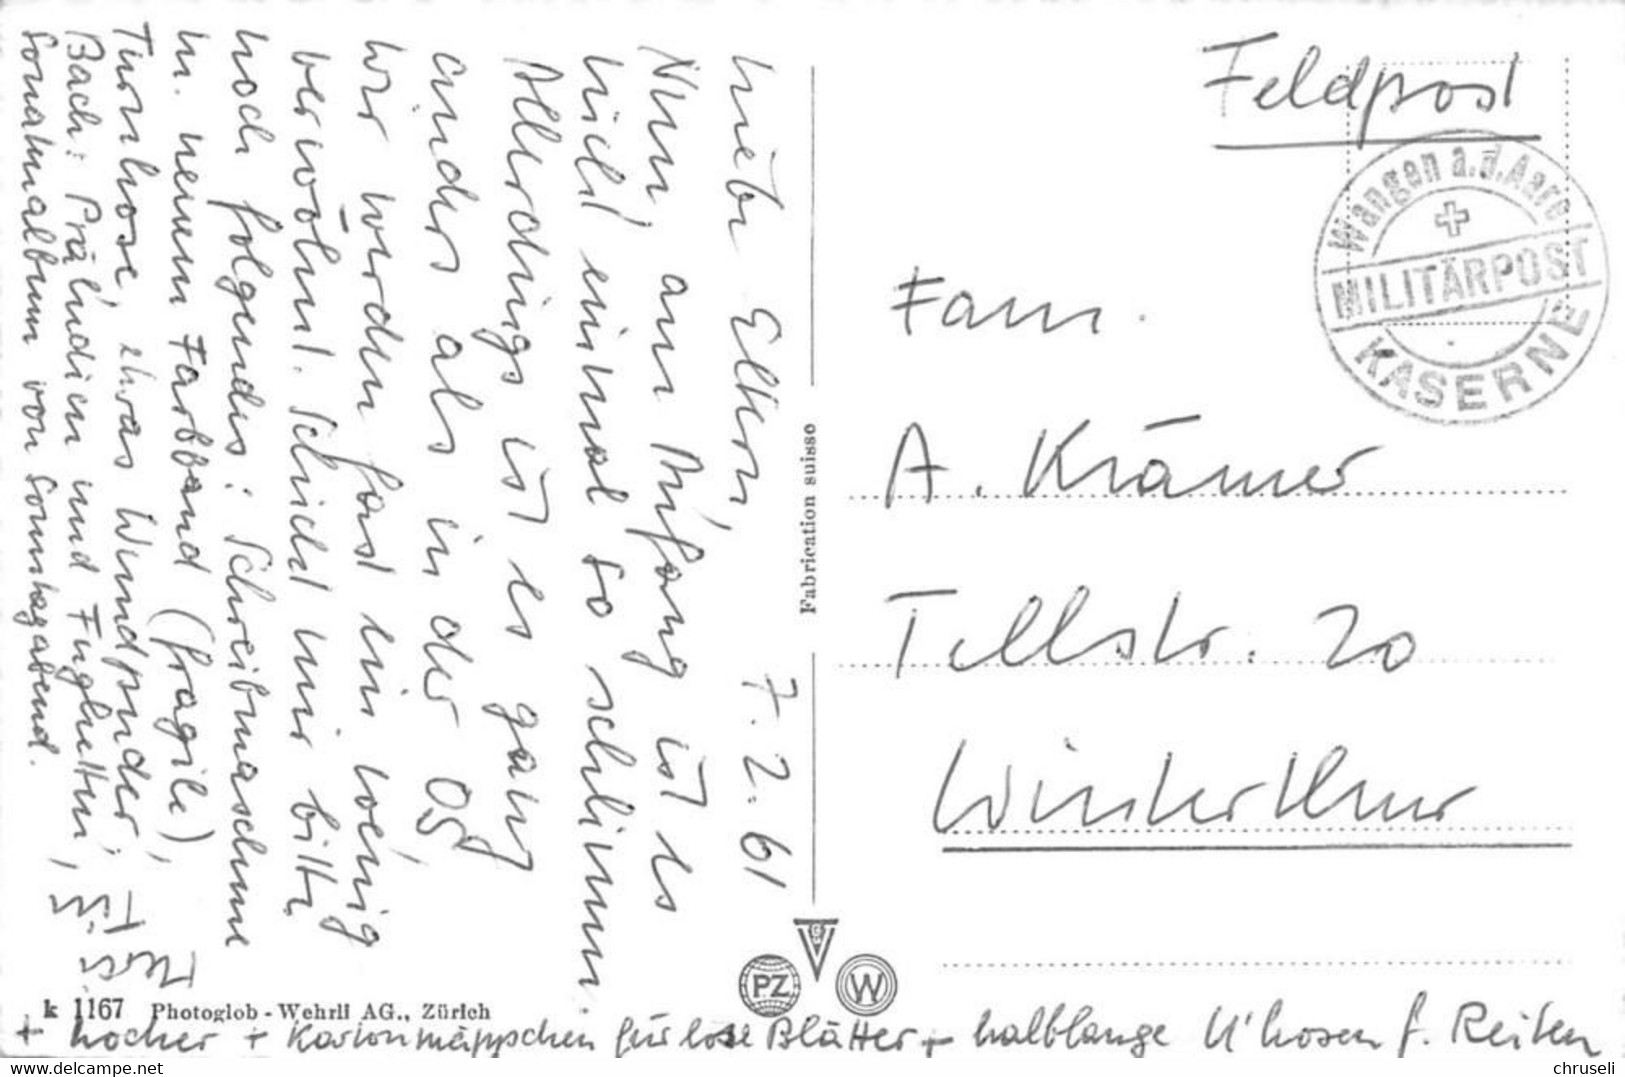 Liebe Eltern, 7.2.61
Nun, am Anfang ist es
nicht einmal so schlimm.
Allerdings ist es ganz
anders als in der OS,
wir werden fast ein wenig
verwöhnt. Schickt mir bitte
noch folgendes: Schreibmaschine
m. neuem Farbband (fragile),
Turnhose, etwas Wundpuder,
Bach: Präludien und Fughetten,
Sonatinalbum von Sonntagabend.
+ Locher + Kartonmäppchen für lose Blätter + halblange U'hosen f. Reiten
Feldpost
Wangen a.d. Aare
MILITÄRPOST
KASERNE
Fam.
A. Krämer
Tellstr. 20
Winterthur
Fabrication suisse
PZ
W
k 1167 Photoglob-Wehrli AG., Zürich
www.delcampe.net
chruseli